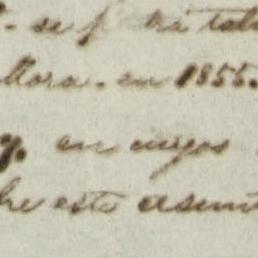 se
llora. en 1855.
en cuyos
bre este asunt